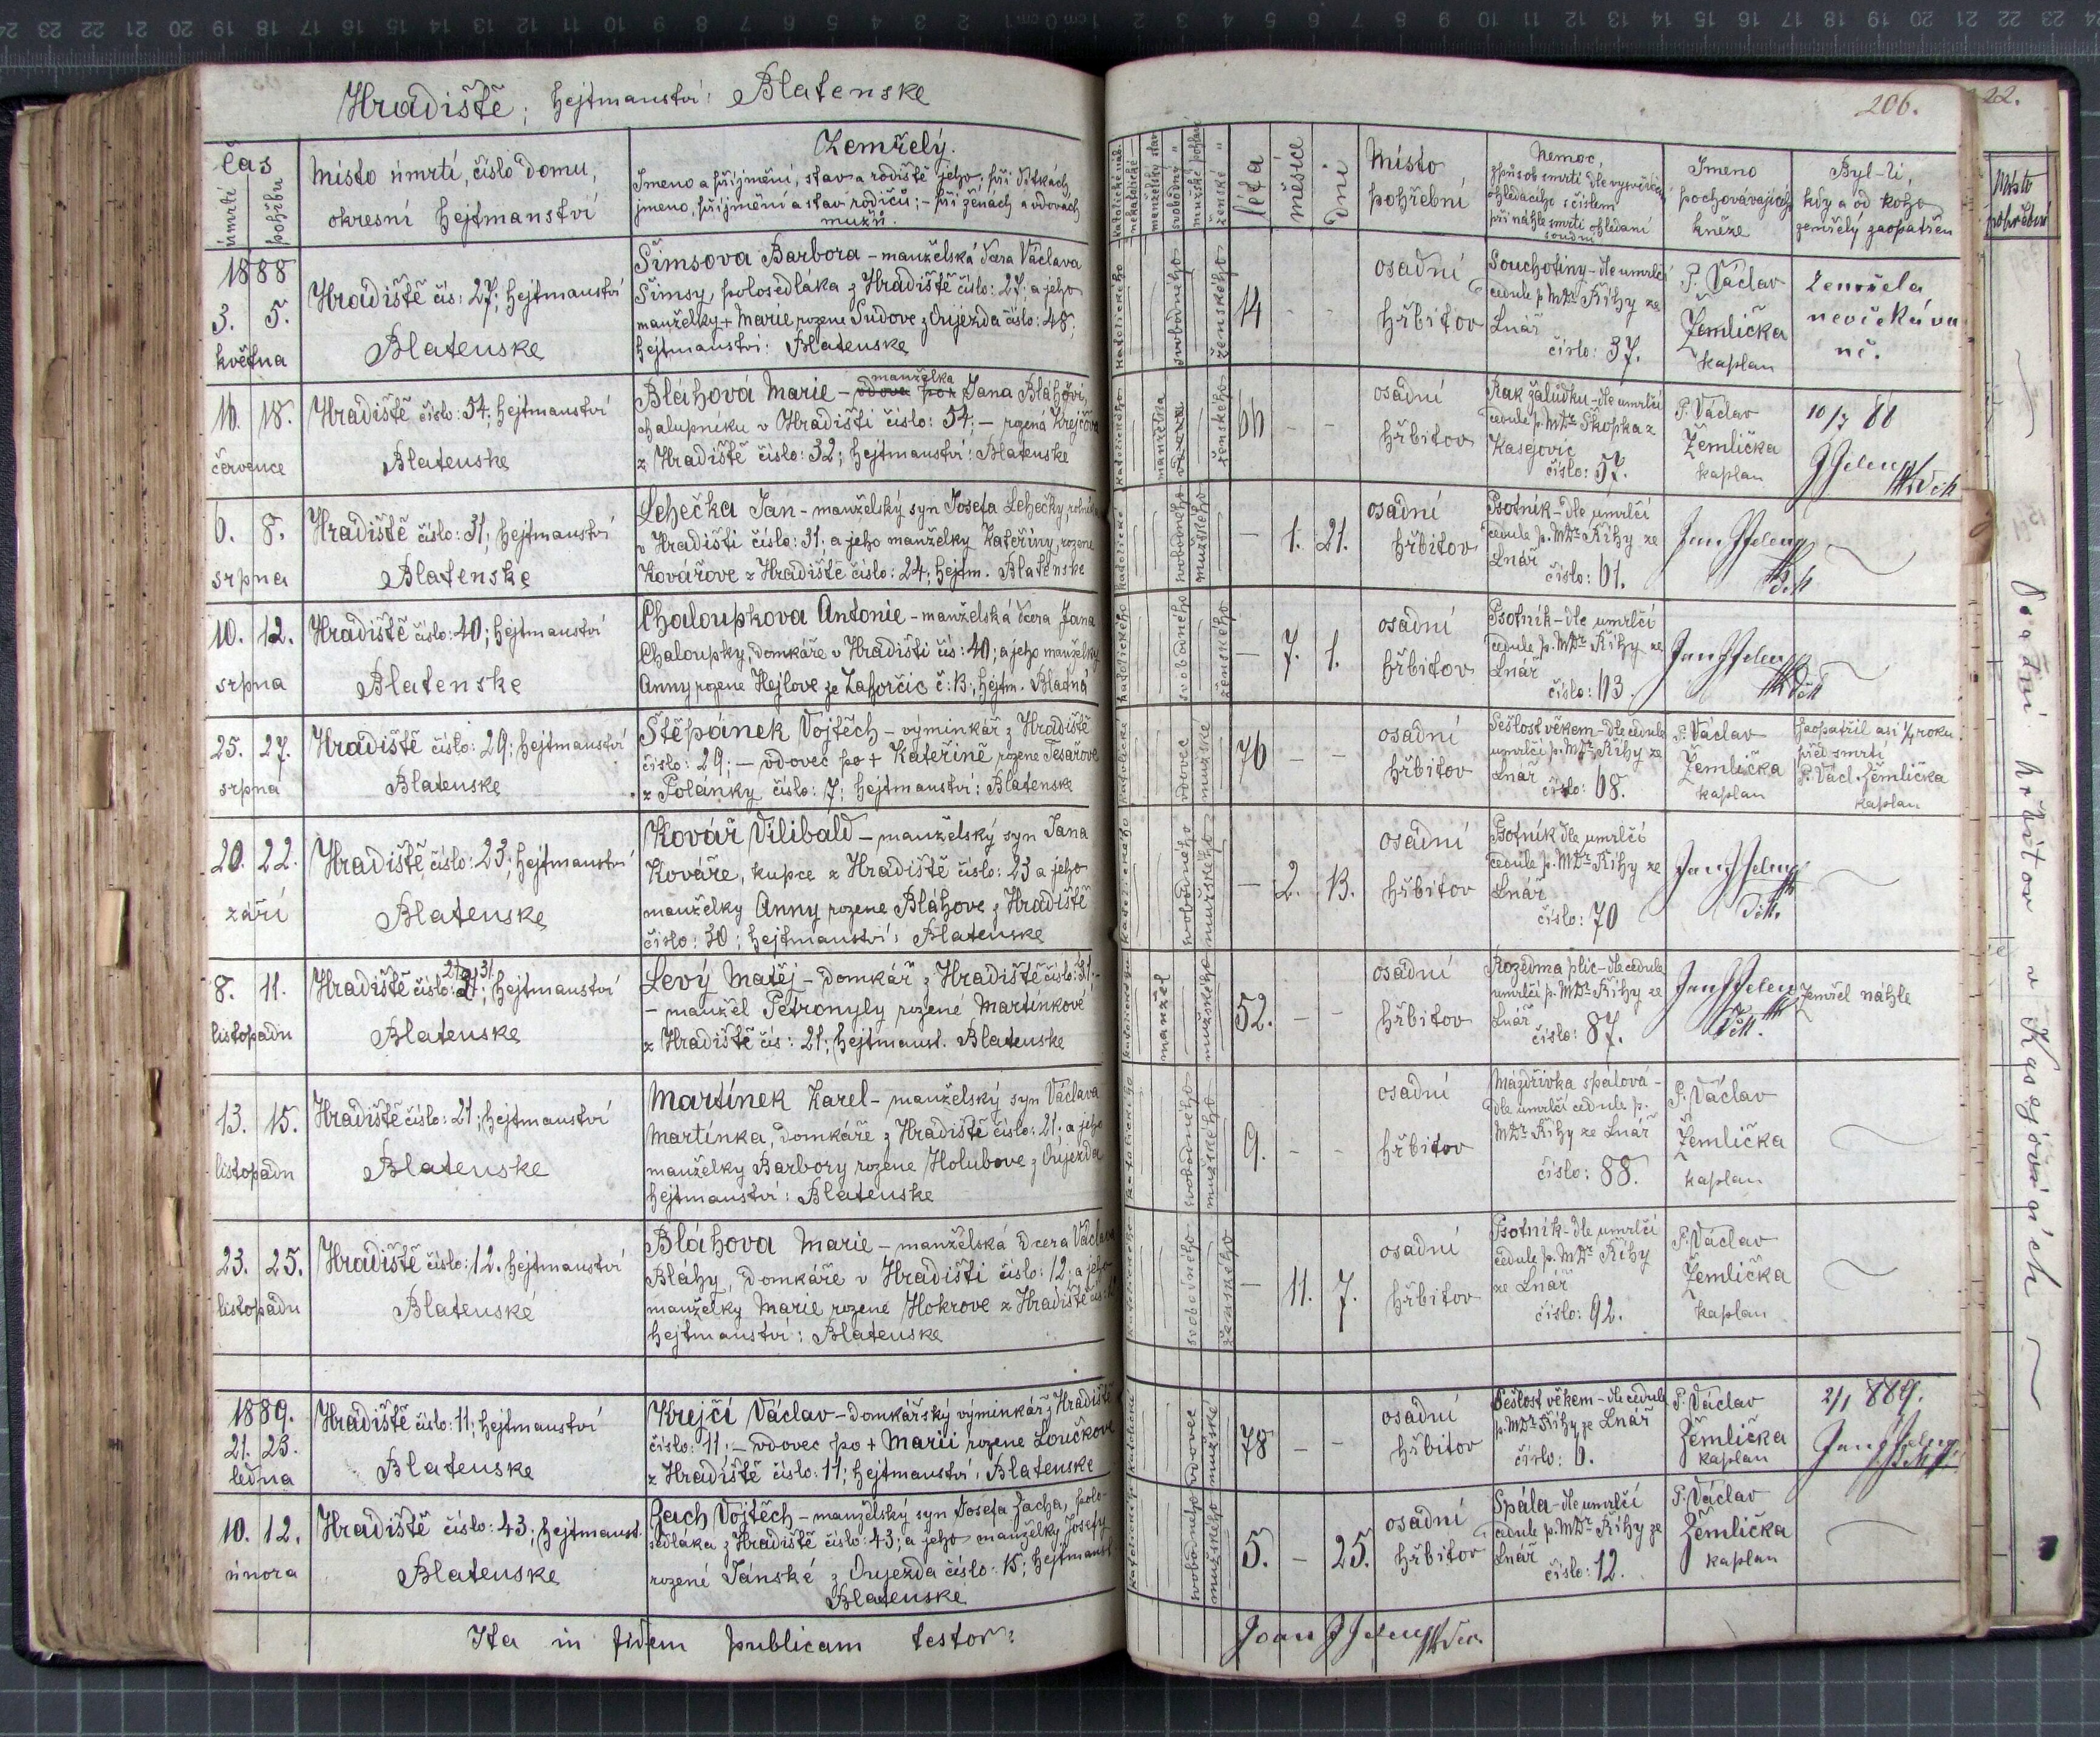 206.
22.
Hradiště; hejtmanství: Blatenske
čas
úmrtí
pohřbu
Místo úmrtí, číslo domu,
okresní hejtmanství
Zemřelý.
Jmeno a příjmění, stav a rodiště jeho, při dítkách,
jmeno, příjmění a stav rodičů; – při ženách a vdovách
mužů.
katolické nab.
nekatolické
menželský stav
svobodný "
mužské pohlaví
ženské "
léta
měsíce
dní
Místo
pohřební
Nemoc,
způsob smrti dle vysvědčení
ohledacího s číslem
při náhle smrti ohledaní
soudní
Jmeno
pochovávajícího
kněze
Byl-li,
kdy a od koho
zemřelý zaopatřen
Místo
pohřební
1888
3. 5.
května
Hradiště čís: 27; hejtmanství
Blatenske
Šimsova Barbora – manželská dcera Václava
Šimsy, polosedláka z Hradiště číslo: 27; a jeho
manželky + Marie rozene Sudove z Oujezda číslo: 48;
hejtmanství: Blatenske
katolického
svobodného
ženského
14 - -
osadní
hřbitov
Souchotiny – dle umrlčí
cedule p. MDr Říhy ze
Lnář
číslo: 37.
P. Václav
Žemlička
kaplan
Zemřela
neočekáva
ně.
16. 18.
července
Hradiště číslo: 54; hejtmanství
Blatenske
manželka
Bláhová Marie – vdova po + Jana Bláhovi,
chalupníku v Hradišti číslo: 54; – rozená Krejčova
z Hradiště číslo: 32; hejtmanství: Blatenske
katolického
manželka
vdova
ženského
66 - -
osadní
hřbitov
Rak žaludku – dle umrlčí
cedule p. MDr Škopka z
Kasejovic
číslo: 57.
P. Václav
Žemlička
kaplan
10/7 88
6. 8.
srpna
Hradiště číslo: 31; hejtmanství
Blatenske
Lehečka Jan – manželský syn Josefa Lehečky, rolníka
v Hradišti číslo: 31; a jeho manželky Kateřiny, rozene
Kovářove z Hradiště číslo: 24; hejtm. Blatenske
katolické
svobodného
mužského
– 1. 21.
osadní
hřbitov
Psotník – dle umrlčí
cedule p. MDr Říhy ze
Lnář
číslo: 61.
10. 12.
srpna
Hradiště číslo: 40; hejtmanství
Blatenske
Chaloupkova Antonie – manželská dcera Jana
Chaloupky, domkáře v Hradišti čís: 40; a jeho manželky
Anny rozene Hejlove ze Zahorčic č: 13; hejtm. Blatná
katolického
svobodného
ženského
– 7. 1.
osadní
hřbitov
Psotník – dle umrlčí
cedule p. MDr Říhy ze
Lnář
číslo: 63.
25. 27.
srpna
Hradiště číslo: 29; hejtmanství
Blatenske
Štěpánek Vojtěch – výminkář z Hradiště
číslo: 29; – vdovec po + Kateřině rozene Tesařove
z Polanky číslo: 7; hejtmanství: Blatenske
katolické
vdovec
mužské
76 - -
osadní
hřbitov
Sešlost věkem – dle cedule
umrlčí p. MDr Říhy ze
Lnář
číslo: 68.
P. Václav
Žemlička
kaplan
Zaopatřil asi 1/4 roku
před smrtí
P. Václ. Žemlička
kaplan
20. 22.
září
Hradiště číslo: 23; hejtmanství
Blatenske
Kovář Vilibald – manželský syn Jana
Kováře, kupce z Hradiště číslo: 23 a jeho
manželky Anny rozene Bláhove z Hradiště
číslo: 30; hejtmanství: Blatenske
katolického
svobodného
mužského
– 2. 13.
osadní
hřbitov
Psotník dle umrlčí
cedule p. MDr Říhy ze
Lnář
číslo: 70
8. 11.
listopadu
Hradiště číslo: 31; hejtmanství
Blatenske
Levý Matěj – domkář z Hradiště číslo: 31; –
– manžel Petronyly rozené Martinkové
z Hradiště čís: 21; hejtmanst. Blatenske
katolického
manžel
mužského
52. - -
osadní
hřbitov
Rozedma plic – dle cedule
umrlčí p. MDr Říhy ze
Lnář
číslo: 87.
Zemřel náhle
13. 15.
listopadu
Hradiště číslo: 21; hejtmanství
Blatenske
Martínek Karel – manželský syn Václava
Martínka, domkáře z Hradiště číslo: 21; a jeho
manželky Barbory rozene Holubove z Oujezda
hejtmanství: Blatenske
katolického
svobodného
mužského
9. - -
osadní
hřbitov
Mázdřivka spálová –
dle umrlčí cedule p.
MDr Říhy ze Lnář
číslo: 88.
P. Václav
Žemlička
kaplan
23. 25.
listopadu
Hradiště číslo: 12. hejtmanství
Blatenské
Bláhova Marie – manželská dcera Václava
Bláhy, domkáře v Hradišti číslo: 12. a jeho
manželky Marie rozene Hokrove z Hradiště čís:
hejtmanství: Blatenske
katolického
svobodného
ženského
– 11. 7.
osadní
hřbitov
Psotník – dle umrlčí
cedule p. MDr Říhy
ze Lnář
číslo: 92.
P. Václav
Žemlička
kaplan
1889.
21. 23.
ledna
Hradiště číslo: 11; hejtmanství
Blatenske
Krejčí Václav – domkářský výminkář z Hradiště
číslo: 11; – vdovec po + Marii rozene Loučkove
z Hradiště číslo: 11; hejtmanství: Blatenske
katolické
vdovec
mužské
78 - -
osadní
hřbitov
Sešlost věkem – dle cedule
p. MDr Říhy ze Lnář
číslo: 6.
P. Václav
Žemlička
kaplan
2/1 889.
10. 12.
února
Hradiště číslo: 43; hejtmanst.
Blatenske
Zach Vojtěch – manželský syn Josefa Zacha, polo-
sedláka z Hradiště číslo: 43; a jeho manželky Josefy
rozené Jánské z Oujezda číslo: 15; hejtmanst.
Blatenské
katolického
svobodného
mužského
5. – 25.
osadní
hřbitov
Spála – dle umrlčí
cedule p. MDr Říhy ze
Lnář
číslo: 12.
P. Václav
Žemlička
kaplan
Ita in fidem publicam testor:
Osadní hřbitov v Kasejovicích